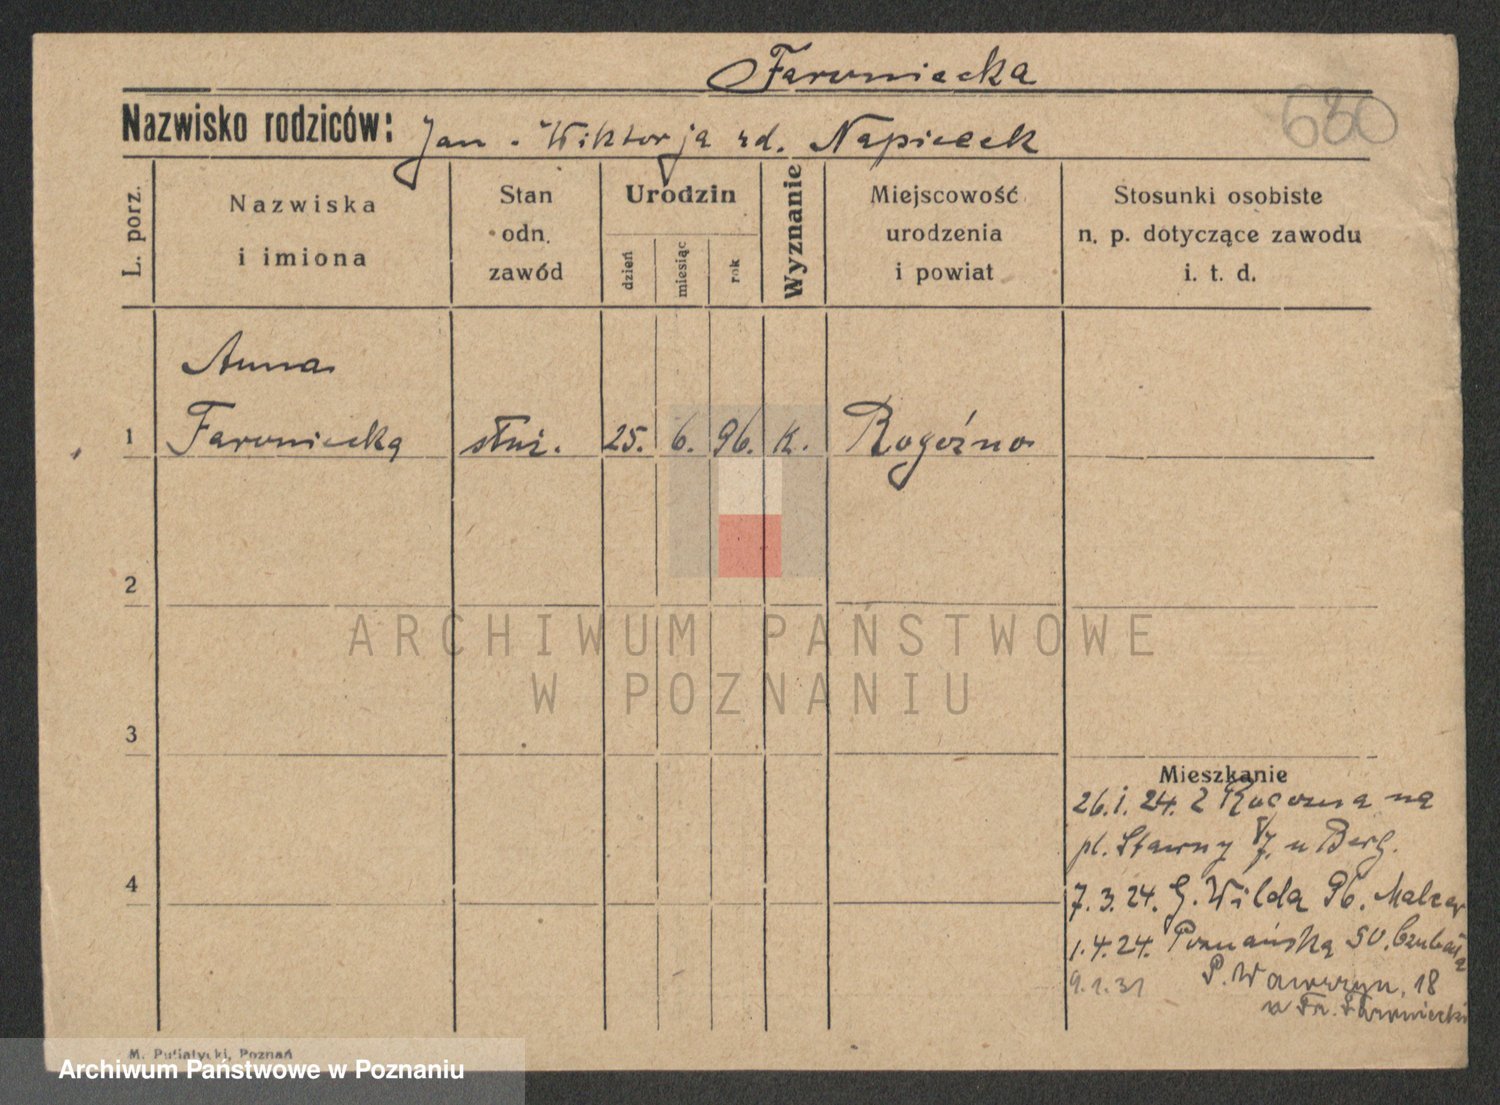 Faroniecka
630
Nazwisko rodziców: Jan - Wiktorja rd. Napieeck
L. porz.
Nazwiska i imiona
Stan odn. zawód
Urodzin
dzień
miesiąc
rok
Wyznanie
Miejscowość urodzenia i powiat
Stosunki osobiste n. p. dotyczące zawodu i. t. d.
Anna
1 Faroniecka służ. 25. 6. 96. K. Rogoźno
2
ARCHIWUM PAŃSTWOWE
W POZNANIU
3
Mieszkanie
26.1.24. z Rogozna na
pl. Stawny 7. u Berg.
4
7.3.24. G. Wilda 96.
1.4.24. Poznańska 50.
9.1.31 P. Wawrzyn. 18
u Fr. Faroniecki
M. Putiatycki, Poznań
Archiwum Państwowe w Poznaniu